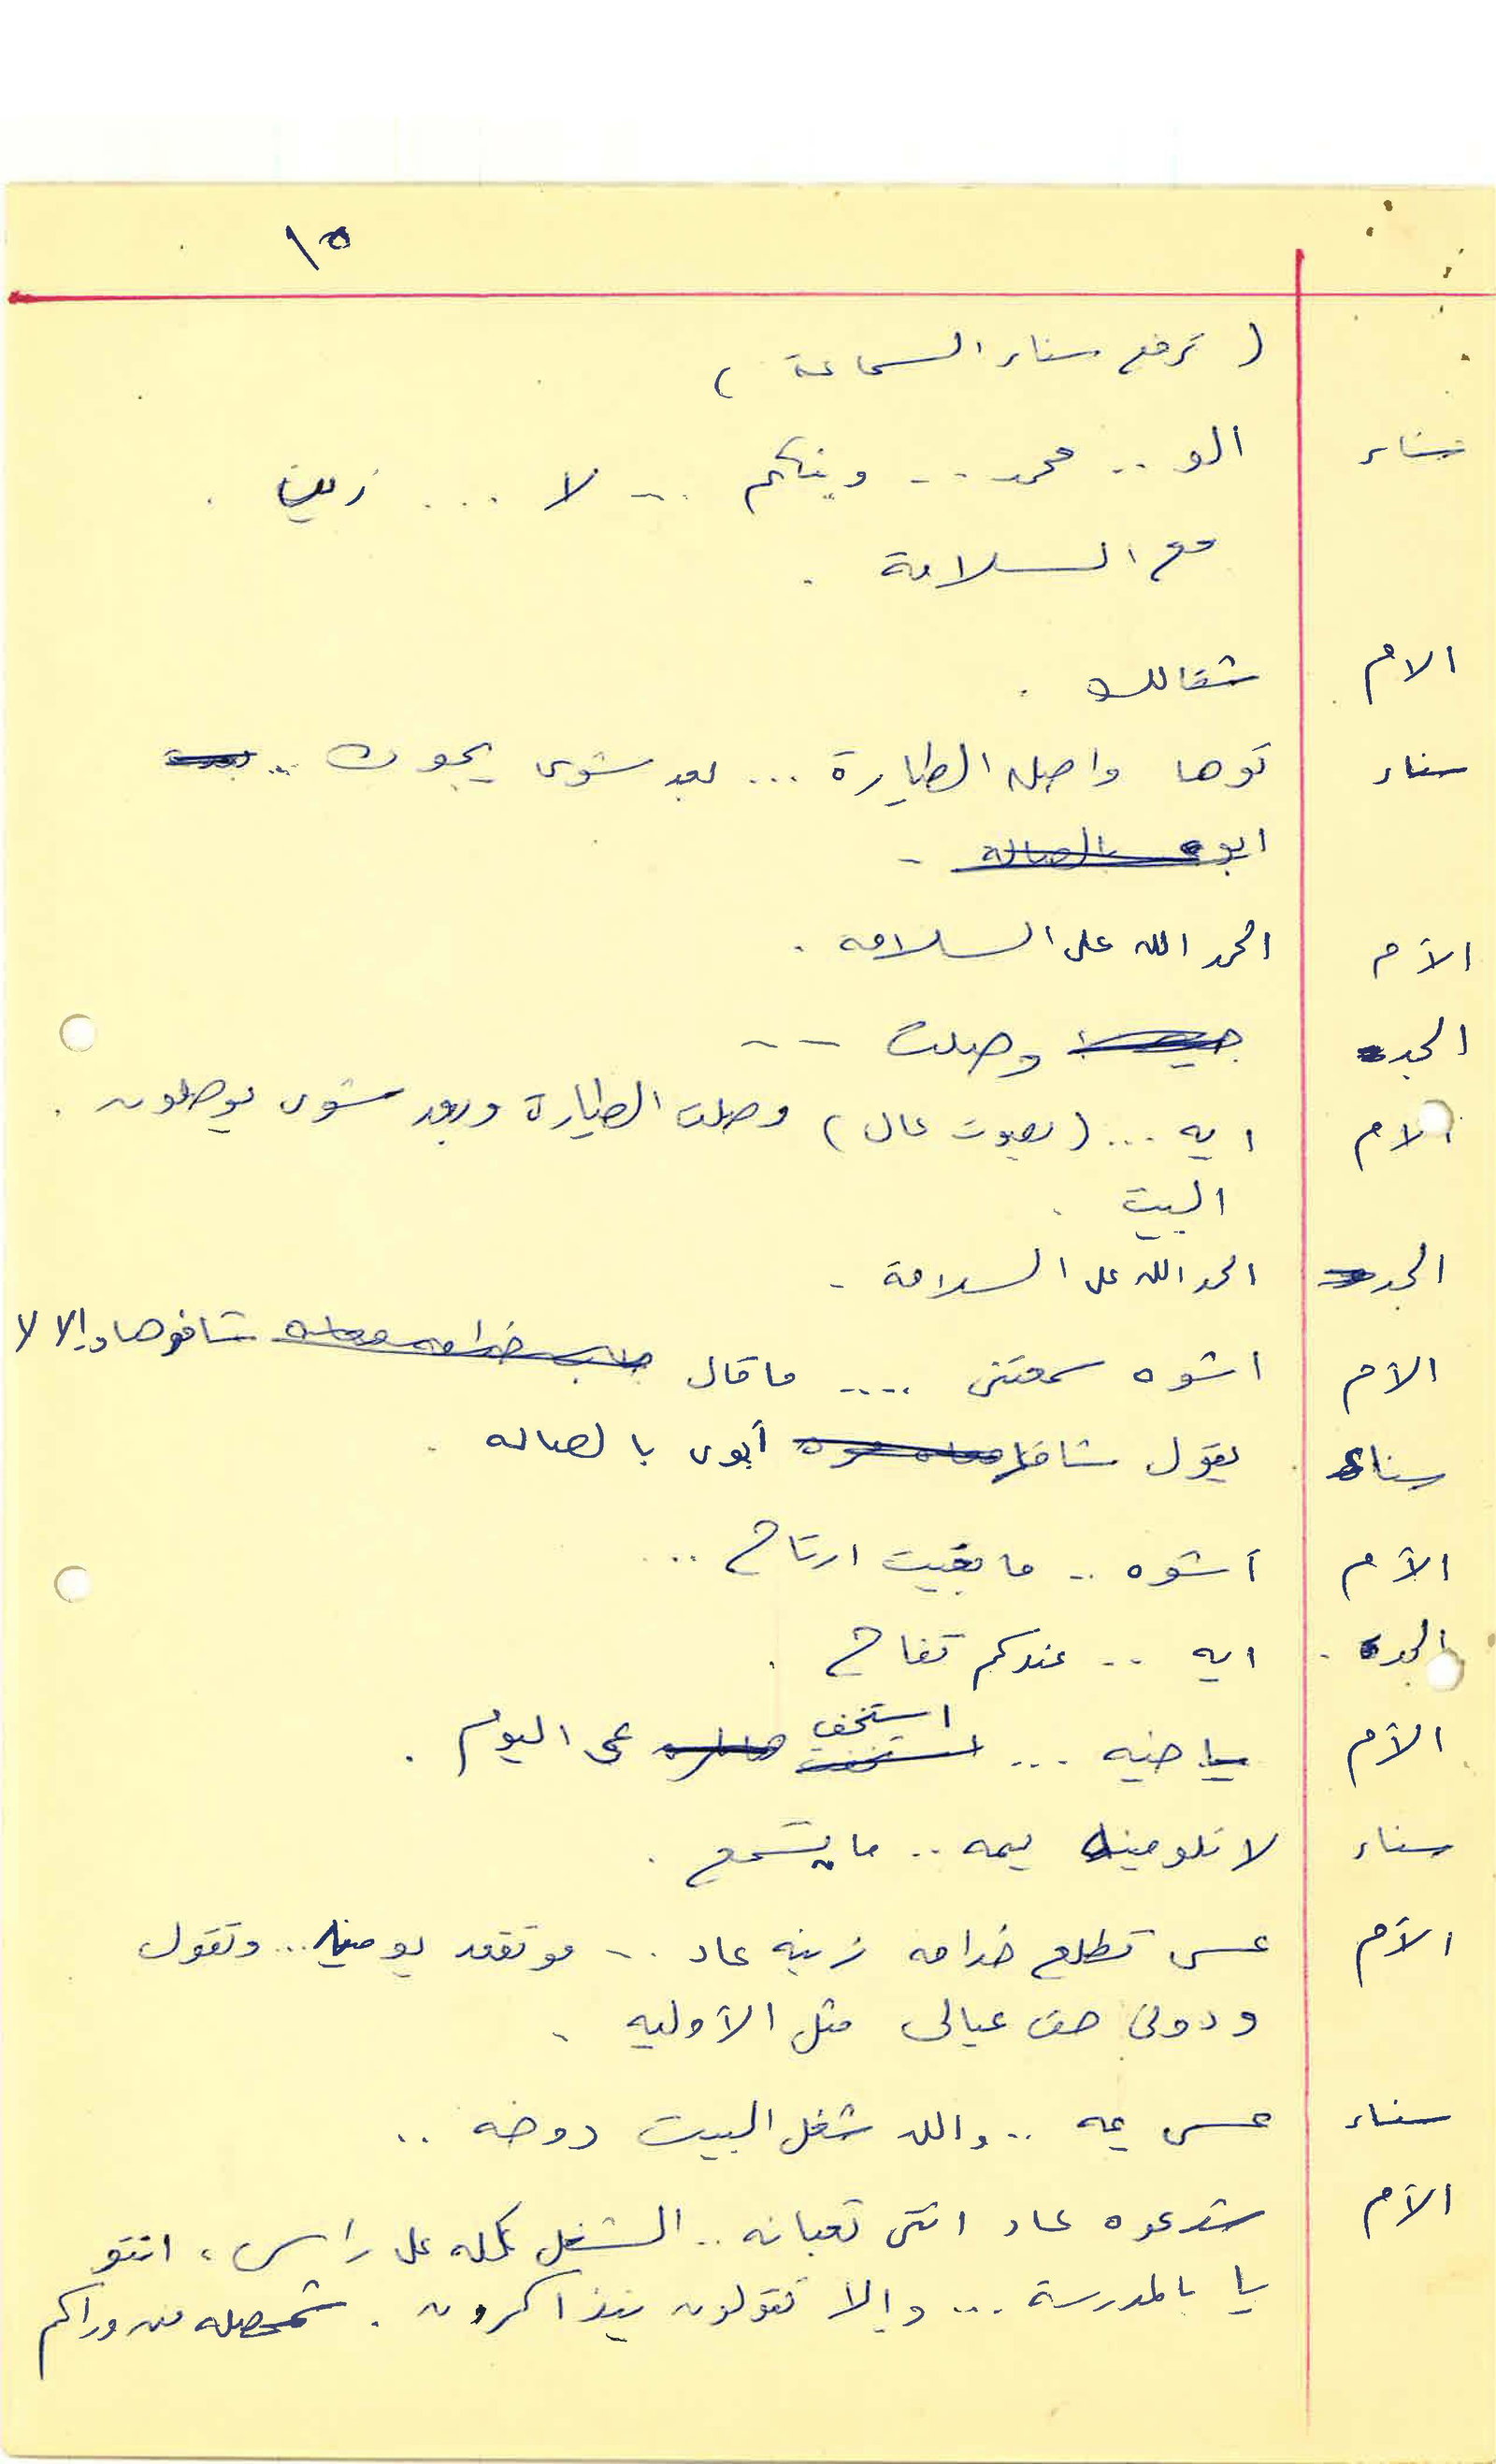 ١٥
( ترفع سناء السماعة )
سناء الو .. محمد .. وينكم ... لا ... زين .
مع السلامة .
الام شقالك .
سناء توها واصله الطيارة ... بعد شوى يجون ..
ابوى بالصالة -
الأم الحمد الله على السلامه .
الجد وصلت --
الام ايه ... (بصوت عال) وصلت الطيارة وبعد شوى يوصلون .
البيت .
الجد الحمد الله على السلامة -
الأم اشوه سمعتنى .... ما قال شافوها والا لا
سناء يقول شافها أبوى بالصاله .
الأم أشوه .. ما بغيت ارتاح ..
الجد ايه .. عندكم تفاح .
الأم يا خيه ... استخف عمى اليوم .
سناء لا تلومينه يمه .. ما يسمع .
الأم عسى تطلع خدامه زينه عاد .. مو تقعد يومين .. وتقول
ودونى حق عيالى مثل الأوليه .
سناء عسى يمه .. والله شغل البيت دوخه ..
الأم شدعوه عاد انتى تعبانه .. الشغل كله على راسى ، انتو
يا بالمدرسة ... والا تقولون بنذاكرون . شمحصله من وراكم